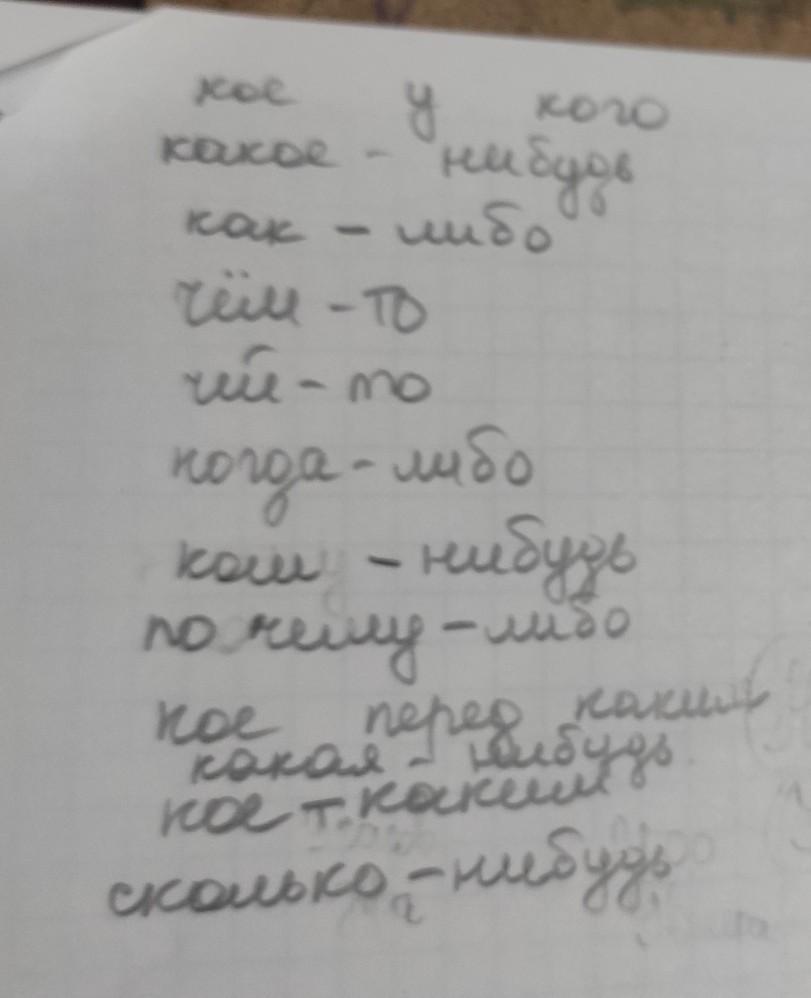 кое у кого
какое - нибудь
как - либо
чём - то
чей - то
когда - либо
ком - нибудь
по чему - либо
кое перед каким
какая - нибудь
кое - каким
сколько - нибудь